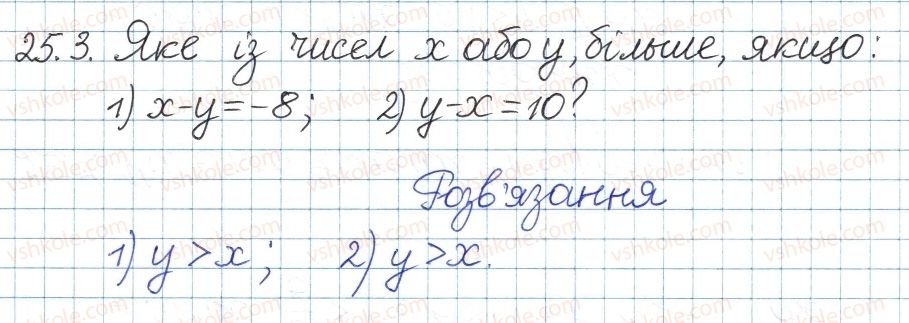 25.3. Яке із чисел x або y, більше, якщо:
1) x-y=-8; 2) y-x=10?
Розв'язання
1) y>x; 2) y>x.